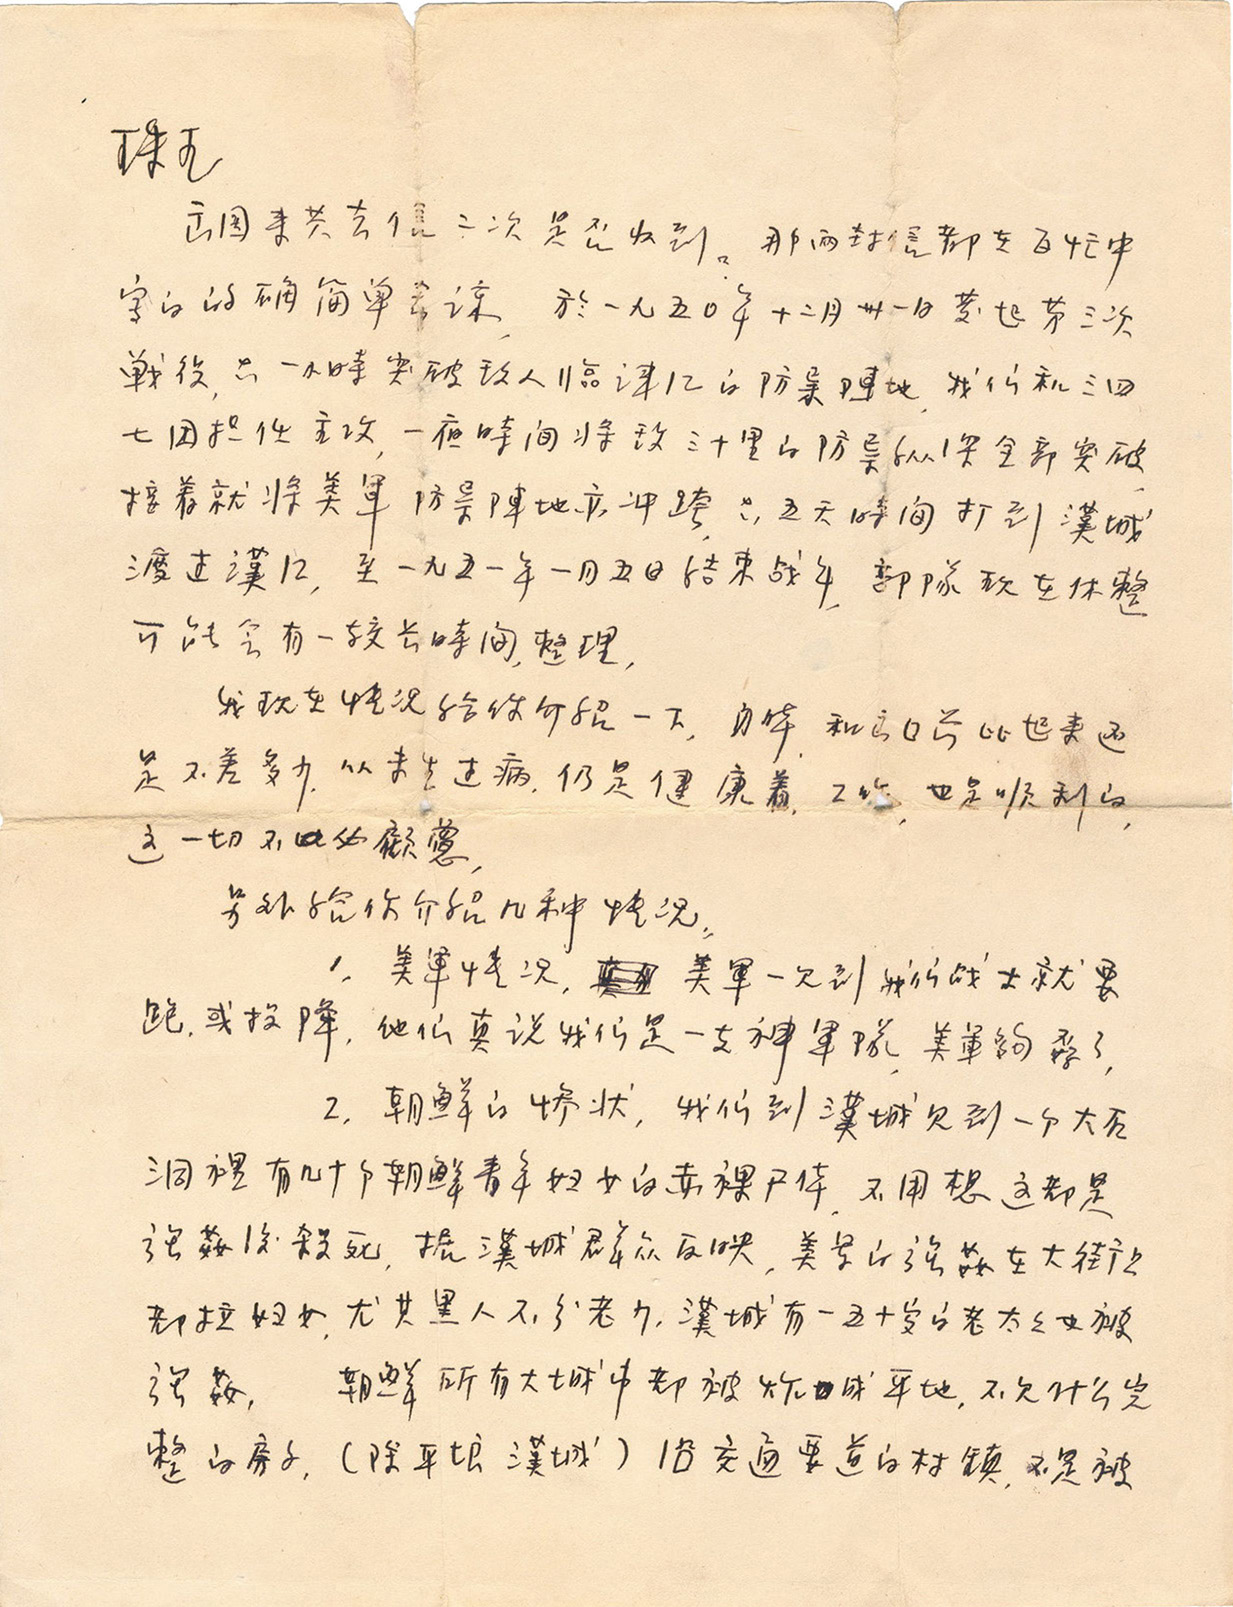 珠凡
出国来共去信二次是否收到。那两封信都在百忙中
写的的确简单
於一九五〇年十二月卅一日发起第三次
戰役,只一小時突破敌人临津江的防禦陣地,我们和三四
七团担任主攻,一夜時间将敌三十里的防禦纵深全部突破,
接着就将美軍防禦陣地亦冲跨,只五天時间打到漢城
渡过漢江,至一九五一年一月五日结束战斗,部隊现在休整
可能会有一较长時间,整理,
我现在情况给你介绍一下,身体,和出口前比起来还
是不差多少,从未生过病,仍是健康着,工作,也是顺利的,
这一切不必顾慮,
另外给你介绍几种情况,
1、美軍情况,美軍一见到我们战士就要
跑,或投降,他们真说我们是一支神軍隊,美軍
2、朝鮮的惨状,我们到漢城见到一个大石
洞裡有几十个朝鮮青年妇女的赤裸尸体,不用想这都是
强姦后殺死,据漢城群众反映,美军的强姦在大街上
都拉妇女,尤其黑人不分老少,漢城有一五十岁的老太太也被
强姦,朝鮮所有大城市都被炸成平地,不见什么完
整的房子,(除平壤漢城)沿交通要道的村镇,不是被